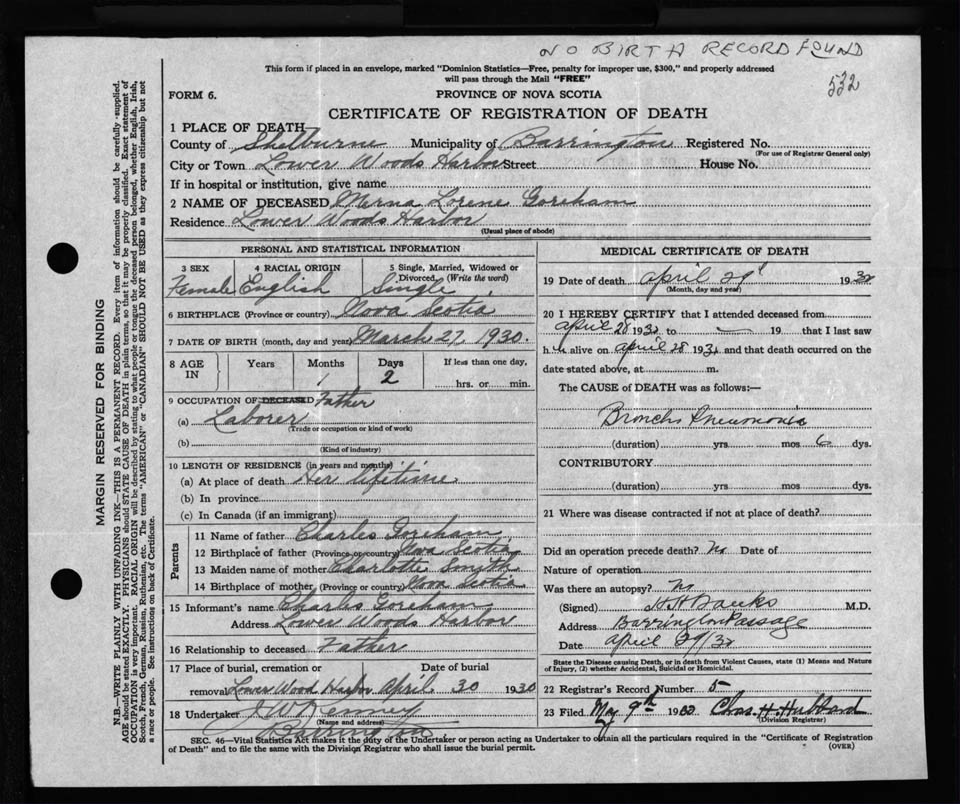 NO BIRTH RECORD FOUND
532
This form if placed in an envelope, marked "Dominion Statistics—Free, penalty for improper use, $300," and properly addressed
will pass through the Mail "FREE"
FORM 6. PROVINCE OF NOVA SCOTIA
CERTIFICATE OF REGISTRATION OF DEATH
1 PLACE OF DEATH
County of Shelburne Municipality of Barrington Registered No.
(For use of Registrar General only)
City or Town Lower Woods Harbor Street House No.
If in hospital or institution, give name
2 NAME OF DECEASED Merna Lorene Goreham
Residence Lower Woods Harbor
(Usual place of abode)
PERSONAL AND STATISTICAL INFORMATION
3 SEX 4 RACIAL ORIGIN 5 Single, Married, Widowed or
Divorced, (Write the word)
Female English Single
6 BIRTHPLACE (Province or country) Nova Scotia
7 DATE OF BIRTH (month, day and year) March 27, 1930.
8 AGE IN Years Months Days If less than one day,
1 2 hrs. or min.
9 OCCUPATION OF DECEASED Father
(a) Laborer
(Trade or occupation or kind of work)
(b)
(Kind of industry)
10 LENGTH OF RESIDENCE (in years and months)
(a) At place of death Her lifetime
(b) In province
(c) In Canada (if an immigrant)
Parents
11 Name of father Charles Goreham
12 Birthplace of father (Province or country) Nova Scotia
13 Maiden name of mother Charlotte Smith
14 Birthplace of mother (Province or country) Nova Scotia
15 Informant's name Charles Goreham
Address Lower Woods Harbor
16 Relationship to deceased Father
17 Place of burial, cremation or Date of burial
removal Lower Wood Harbor April 30 1930
18 Undertaker J W Kenney
(Name and address)
Barrington
MEDICAL CERTIFICATE OF DEATH
19 Date of death April 29 1932
(Month, day and year)
20 I HEREBY CERTIFY that I attended deceased from
April 28 1932 to — 19 that I last saw
h alive on April 28 1932 and that death occurred on the
date stated above, at m.
The CAUSE of DEATH was as follows:—
Broncho Pneumonia
(duration) yrs mos 6 dys.
CONTRIBUTORY
(duration) yrs mos dys.
21 Where was disease contracted if not at place of death?
Did an operation precede death? No Date of
Nature of operation
Was there an autopsy? No
(Signed) H H Banks M.D.
Address Barrington Passage
Date April 29/32
State the Disease causing Death, or in death from Violent Causes, state (1) Means and Nature
of Injury, (2) whether Accidental, Suicidal or Homicidal.
22 Registrar's Record Number 5
23 Filed May 9th 19 Chas. H. Hubbard
(Division Registrar)
SEC. 46—Vital Statistics Act makes it the duty of the Undertaker or person acting as Undertaker to obtain all the particulars required in the "Certificate of Registration
of Death" and to file the same with the Division Registrar who shall issue the burial permit.
(OVER)
MARGIN RESERVED FOR BINDING
N.B.—WRITE PLAINLY WITH UNFADING INK—THIS IS A PERMANENT RECORD. Every item of information should be carefully supplied.
AGE should be stated EXACTLY. PHYSICIANS should STATE CAUSE OF DEATH in plain terms, so that it may be properly classified. Exact statement of
OCCUPATION is very important. RACIAL ORIGIN will be described by stating to what people or tongue the deceased person belonged, whether English, Irish,
Scotch, French, German, Russian, Ruthenian, etc. The terms "AMERICAN" or "CANADIAN" SHOULD NOT BE USED as they express citizenship but not
a race or people. See instructions on back of Certificate.